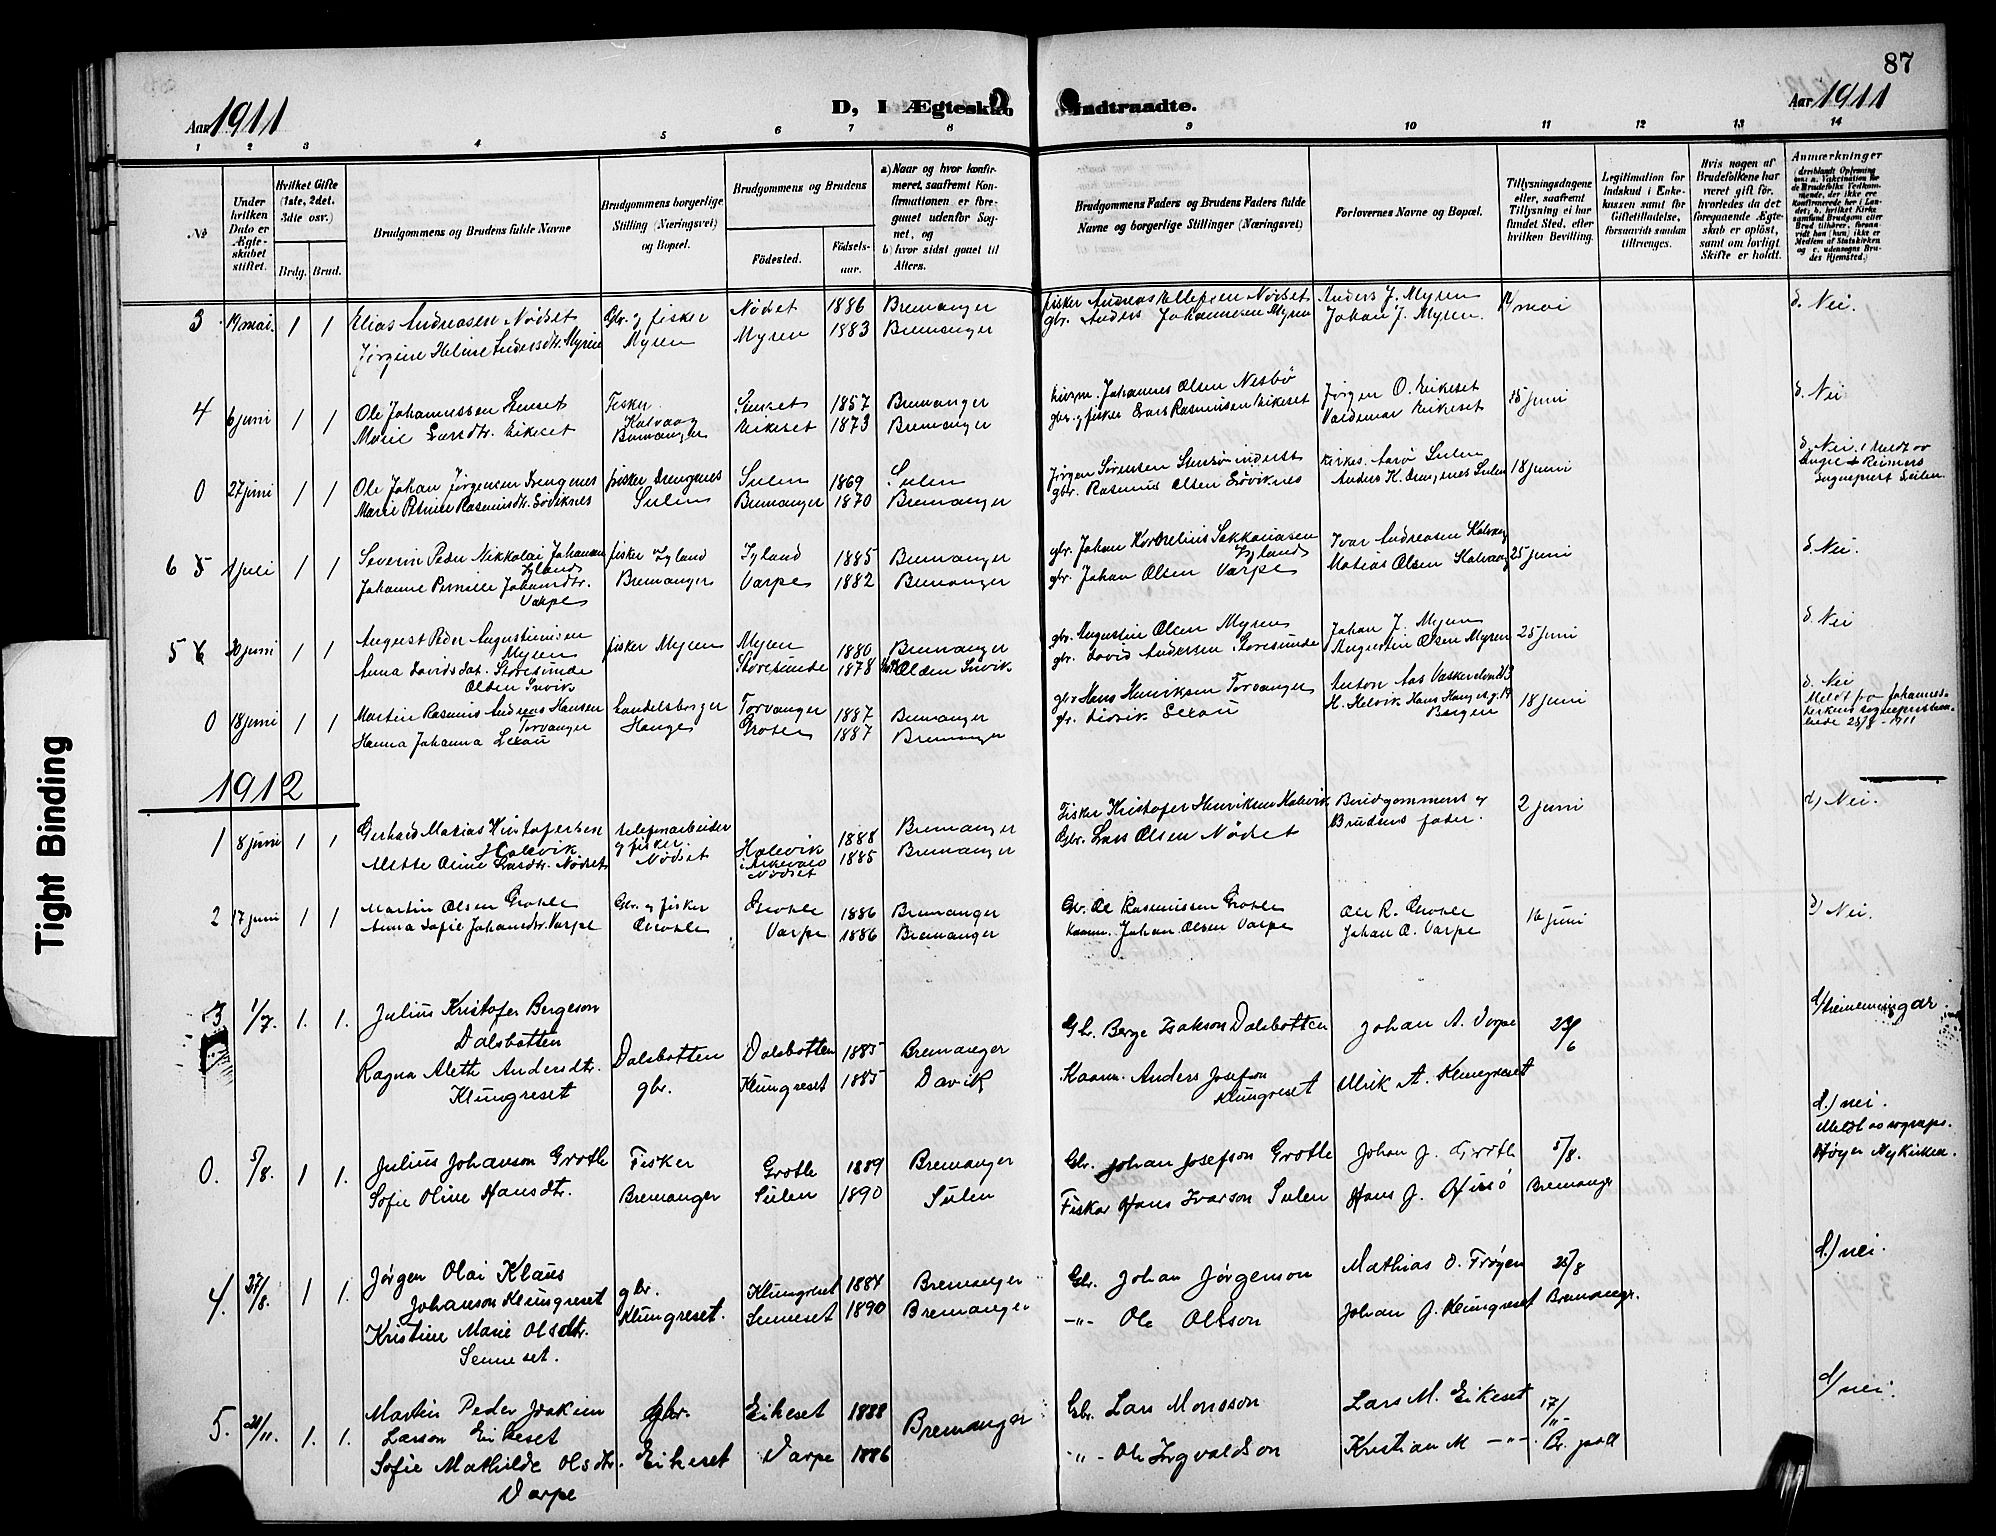 87
Aar 1911
D, I Ægteskab Indtraadte.
Aar 1911
1 2 3 4 5 6 7 8 9 10 11 12 13 14
No
Under hvilken Dato er Ægteskabet stiftet.
Hvilket Gifte (1ste, 2det, 3die osv.)
Brdg. Brud.
Brudgommens og Brudens fulde Navne
Brudgommens borgerlige Stilling (Næringsvei) og Bopæl.
Brudgommens og Brudens
Fødested.
Fødselsaar.
a) Naar og hvor konfirmeret, saafremt Konfirmationen er foregaaet udenfor Sognet, og
b) hvor sidst gaaet til Alters.
Brudgommens Faders og Brudens Faders fulde Navne og borgerlige Stillinger (Næringsvei)
Forlovernes Navne og Bopæl.
Tillysningsdagene eller, saafremt Tillysning ei har fundet Sted, efter hvilken Bevilling.
Legitimation for Indskud i Enkekassen samt for Giftetilladelse, forsaavidt saadan tiltrænges.
Hvis nogen af Brudefolkene har været gift før, hvorledes da det foregaaende Ægteskab er opløst, samt om lovligt Skifte er holdt.
Anmærkninger
3 19 mai. 1 1 Elias Andreasen Nødset Gbr. og fisker Nødset 1886 Bremanger fisker Andreas Ellefsen Nødset Anders J. Myren mai d. Nei.
Jørgine Heline Andersdtr. Myren Myren Myren 1883 Bremanger gbr. Anders Johannesen Myren Johan J. Myren.
4 6 juni 1 1 Ole Johannessen Fisker 1857 Bremanger Johannes Olsen Nesbø Jørgen O. Eikeset 15 juni d. Nei
Marie Larsdtr. Eikeset Kalvaag Bremanger Eikeset 1873 Bremanger gbr. og fisker Lars Rasmussen Eikeset Valdemar Eikeset
0 27 juni 1 1 Ole Johan Jørgensen Drengenes fisker Drengenes Sulen 1869 Sulen Jørgen Sørensen Kirkes. Sulen 18 juni d. Nei. Meldt av
Marie Petrine Rasmusdtr. Løviknes Sulen Bremanger 1870 Bremanger gbr. Rasmus Olsen Løviknes Anders K. Drengenes Sulen Sogneprest Sulen.
6 5 1 juli 1 1 Severin Peder Nikkolai Johansen fisker Igland Igland 1885 Bremanger gbr. Johan Kornelius Sakkariasen Ivar Andreasen Kalvaag 25 juni d. Nei.
Igland
Johanne Pernelle Johansdtr. Bremanger Varpe 1882 Bremanger gbr. Johan Olsen Varpe Matias Olsen Kalvaag
Varpe
5 6 30 juni 1 1 August Peder Augustinusen fisker Myren Myren 1880 Bremanger gbr. Augustin Olsen Myren Johan J. Myren 25 juni d. Nei
Myren
Anna Davidsdat. Storesunde Storesunde 1878 Olden Invik gbr. David Andersen Storesunde Augustin Olsen Myren
Olden Invik
0 18 juni 1 1 Martin Rasmus Andreas Hansen Handelsborger Torvanger 1887 Bremanger gbr Hans Henriksen Torvanger Anton Aas 18 juni d. Nei
Torvanger
Hanna Johanna Hauge Grotle 1887 Bremanger H. Helvik Hans Hauges g. 19 Bergen Meldt fra Johanneskirkens
1911
1912
1 8 juni 1 1 Gerhard Matias Kristofersen telefonarbeider 1888 Bremanger Fisker Kristofer Henriksen Halvik Brudgommens og 2 juni d) Nei.
Halevik og fisker. Halevik
Alette Oline Larsdtr. Nødset Nødset Nødset 1885 Bremanger Gbr. Lars Olsen Nødset Brudens fader.
2 17 juni 1 1 Martin Olsen Grotle Gbr. og fisker Grotle 1886 Bremanger Gbr. Ole Rasmussen Grotle Ole R. Grotle 16 juni d) Nei.
Anna Sofie Johansdtr. Varpe Grotle Varpe 1886 Bremanger Kaarm. Johan Olsen Varpe Johan O. Varpe
3 1/7. 1. 1. Julius Kristofer Bergeson Gbr. Berge Isakson Dalsbotten Johan A. Varpe 23/6
Dalsbotten
Ragna Aleth Andersdtr. Dalsbotten Dalsbotten 1885 Bremanger
Klungreset gbr. Klungreset 1885 Davik Kaarm. Anders Josefson Klungreset Ulrik A. Klungreset
0. 5/8. 1 1. Julius Johanson Grotle Fisker Grotle 1889 Bremanger Gbr. Johan Josefson Grotle Johan J. Grotle 5/8. d.) nei. Meldt
Sofie Oline Hansdtr. Bremanger Sulen 1890 Sulen Fiskar Hans Ivarson Sulen Hans J. Bremanger Nykirken.
4. 27/8. 1 1. Jørgen Olai Klaus gbr. Klungreset 1884 Bremanger Gbr. Johan Jørgenson Mathias O. Frøyen 25/8 d.) nei.
Johanson Klungreset
Kristine Marie Olsdtr. Klungreset. Senneset 1890 Bremanger -"- Ole Olsson Johan J. Klungreset Bremanger.
Senneset.
5. 24/11. 1. 1. Martin Peder Joakim gbr. Eikeset 1888 Bremanger Gbr. Lars Monsson Lars M. Eikeset 17/11 d/ nei.
Larson Eikeset
Sofie Mathilde Olsdtr. Eikeset Varpe 1886 "- Ole Ingvaldson Kristian M -"- Br. poll
Varpe
Tight Binding